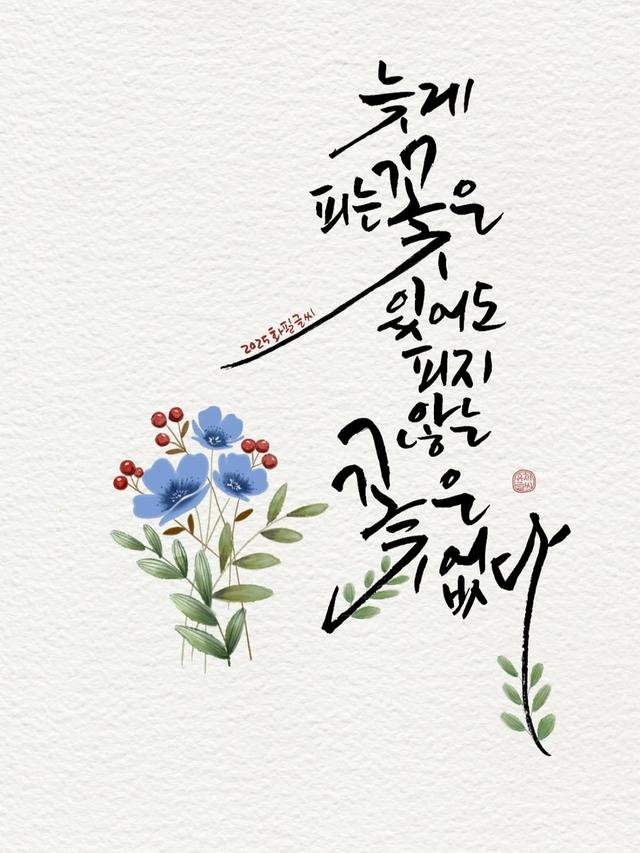 늦게
피는 꽃은
있어도
피지
않는
꽃은
없다
2025 화필글씨